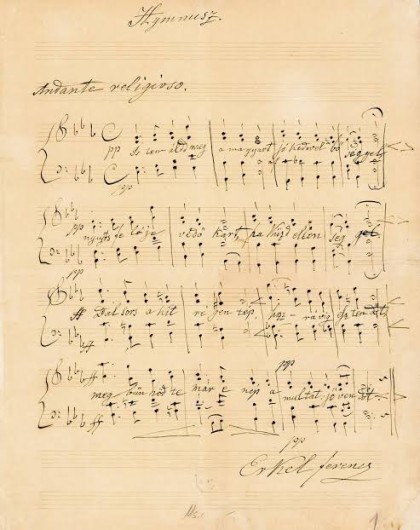 Hymnusz.
Andante religioso.
pp Is ten áldd meg a magyart jó kedvvel bő ség gel
pp
pp nyújts fe lé je védő kart, ha küzd ellen ség gel
pp
ff Bal sors a kit régen tép, hoz - rá víg esz ten dőt
ff
pp
ff meg bűn hőd te már e nép a multat s jö ven dőt
ff
pp
Erkel Ferencz